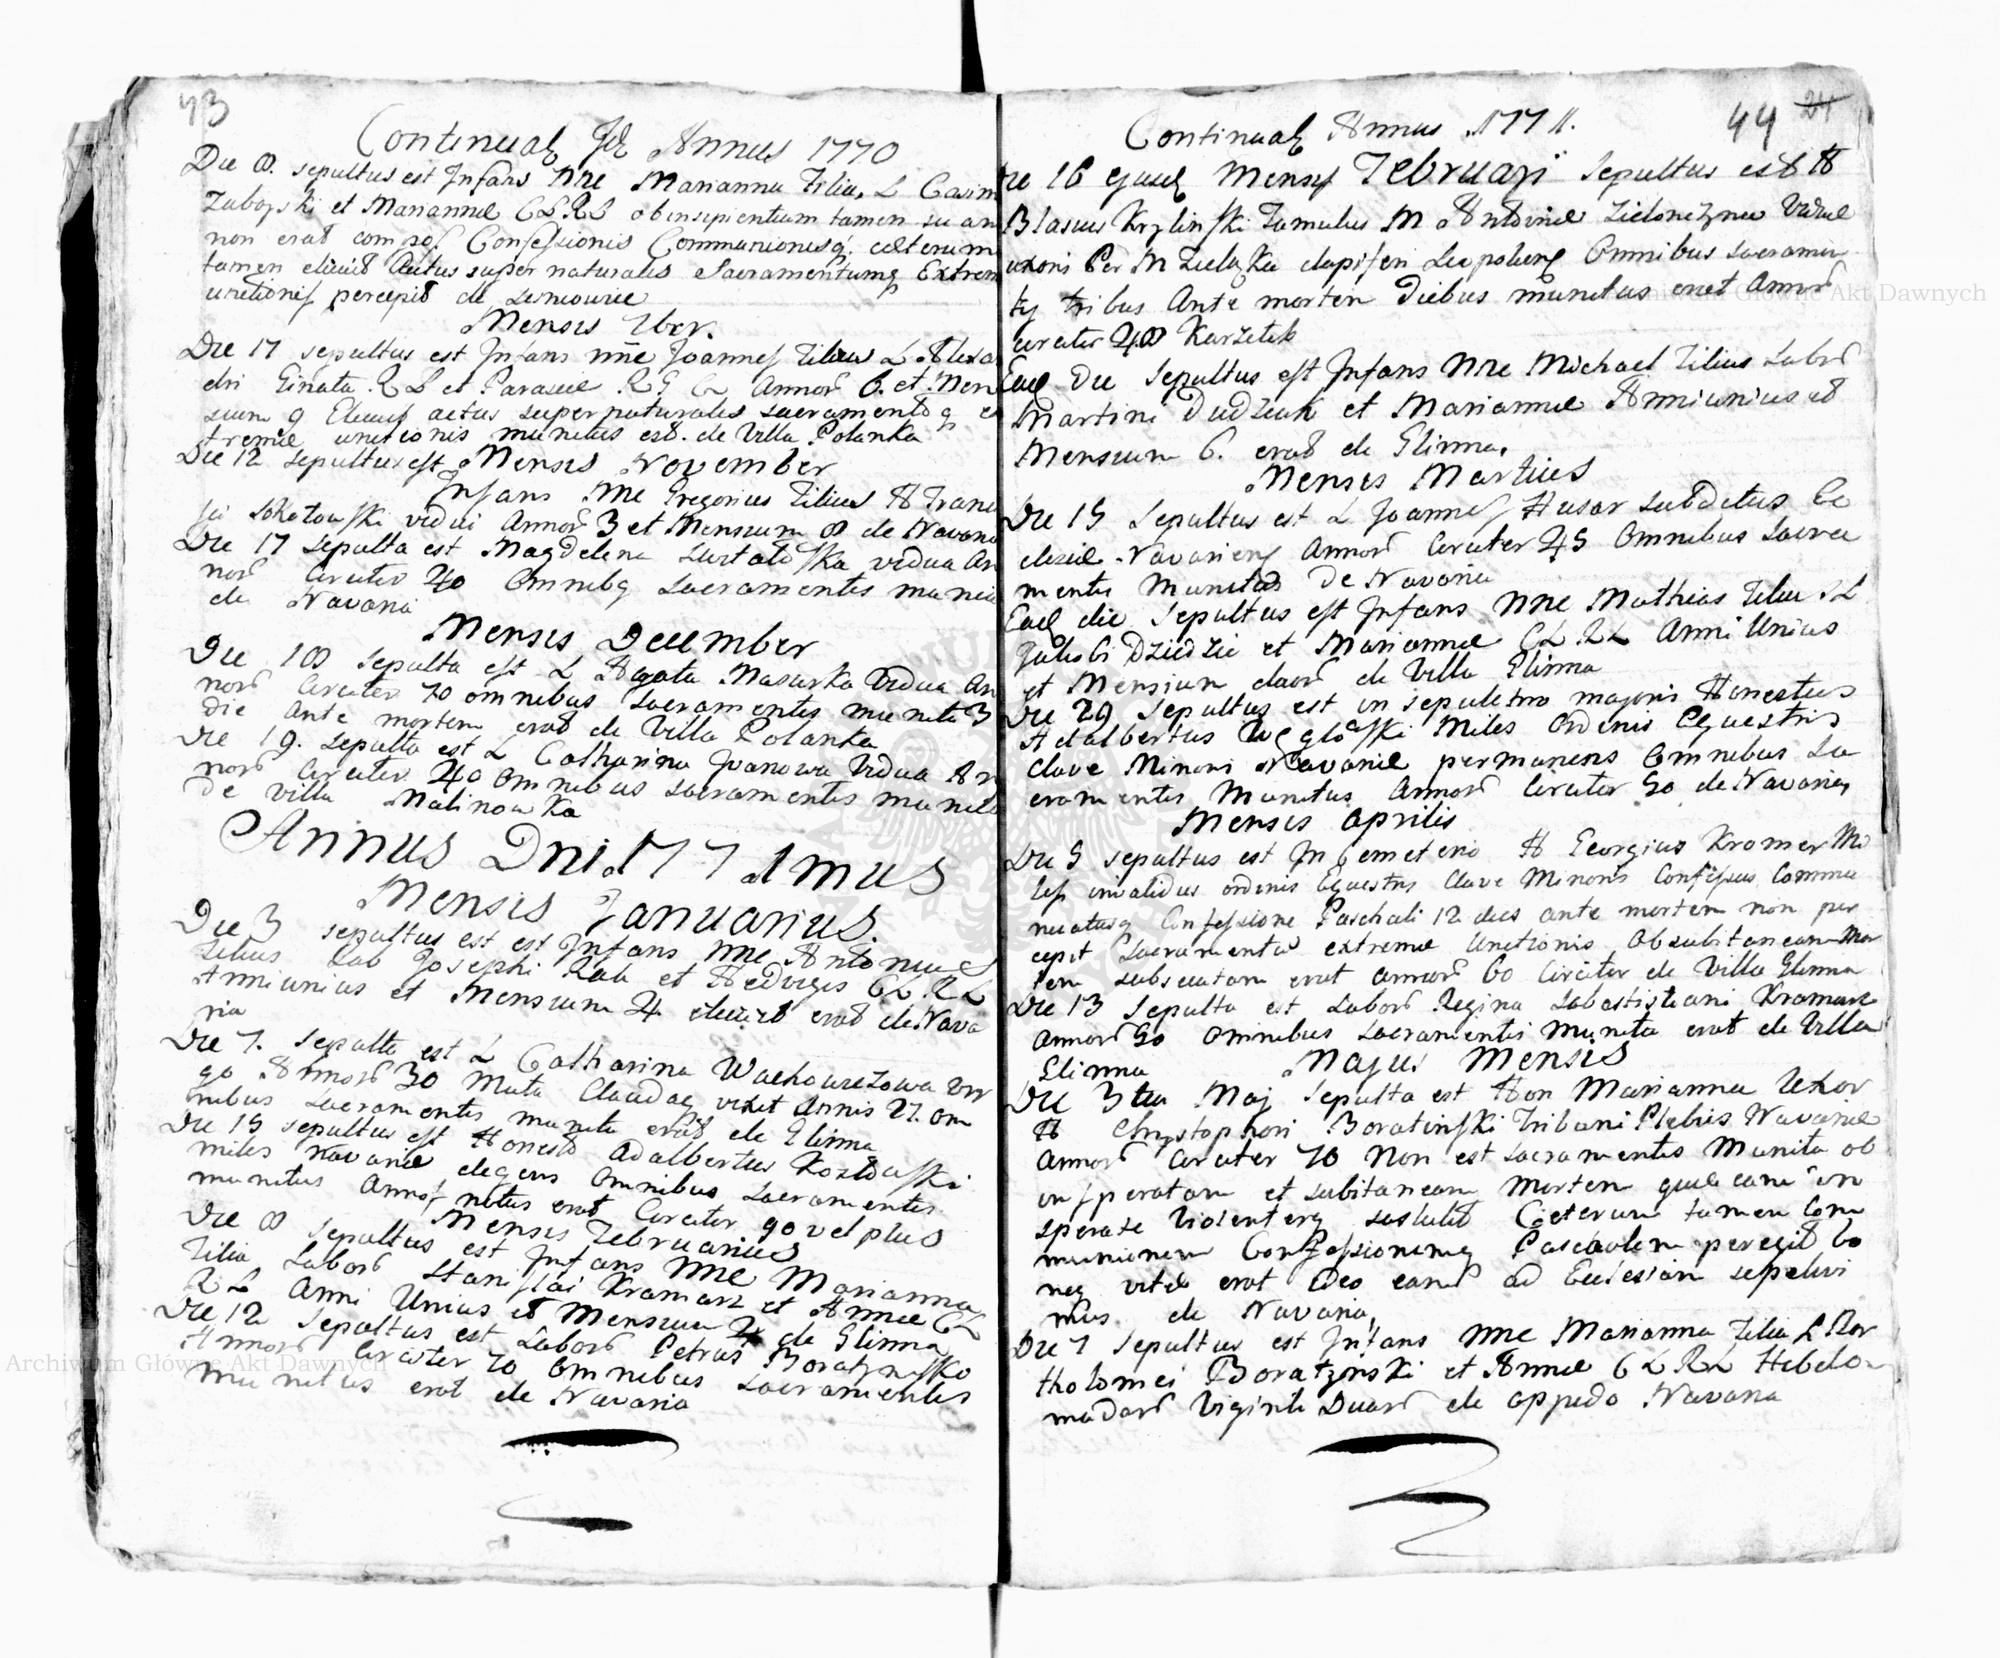 43
Continuat Annus 1770
Die 8. sepultus est Infans nne Marianna Filia L Casim
Zaborski et Mariannae CLRL ob insipientiam tamen
non erat compos Confessionis Communionisq caeterum
tamen elicuit Actus supernaturales Sacramentumq Extrem
unctionis percepit de
Mensis
Die 17 sepultus est Infans nne Joannes Filius L Alexan
dri Ginata R L et R G Annor 6. et Men
sium 9 actus supernaturales sacramentoq ex
tremae unctionis munitus est. de Villa Polanka
Die 12 sepultus est Mensis November
Infans nne Gregorius Filius H Franc
Sokolowski vidui Annor 3 et Mensium 8 de Navaria
Die 17 Sepulta est Magdelena vidua An
nor Circiter 40 Omnibq Sacramentis munita
de Navaria
Mensis December
Die 18 Sepulta est L Agata Masurka Vidua An
nor Circiter 70 omnibus Sacramentis munita 3
die Ante mortem erat de Villa Polanka
Die 19. sepulta est L Catharina Iwanowa Vidua An
nor Circiter 40 Omnibus sacramentis munita
De villa Malinowka
Annus Dni 1771mus
Mensis Januarius.
Die 3 sepultus est est Infans nne Antonius
Filius Lab Josephi Rak et Hedvigis CLRL
Anni unius et Mensium 4 erat de Nava
ria
Die 7. Sepulta est L Catharina Vir
go Annor 30 Muta Clauda vixit Annis 27. Om
nibus sacramentis munita erat de Glinna
Die 15 sepultus est Honest Adalbertus Kozlowski
miles Navariae degens Omnibus sacramentis
munitus Annos natus erat Circiter 90 vel plus
Mensis Februarius
Die 8 Sepultus est Infans nne Marianna
Filia Labor Stanislai Kramarz et Annae CL
RL Anni Unius et Mensium 4 de Glinna
Die 12 Sepultus est Labor Petrus
Annor Circiter 70 Omnibus sacramentis
munitus erat de Navaria
Continuat Annus 1771.
44 24
Die 16 ejusd Mensis Februarii Sepultus est H
Blasius Krzlinski Famulus M Antoninae Viduae
uxoris Per M dapiferi Leopolien Omnibus sacramen
tis tribus Ante mortem Diebus munitus erat Annor
circiter 48
Ead Die Sepultus est Infans nne Michael Filius Labor
Martini Dudziak et Mariannae Anni unius et
Mensium 6. erat de Glinna.
Mensis Martius
Die 15 Sepultus est L Joannes Husar subditus Ec
clesiae Navarien Annor Circiter 45 Omnibus Sacra
mentis Munitus De Navaria
Ead die Sepultus est Infans nne Mathias Filius L
Jakobi Dziedzic et Mariannae CLRL Anni Unius
et Mensium duor de Villa Glinna
Die 29 Sepultus est in sepulchro majoris Honestus
Adalbertus Miles Ordinis Equestris
Clave Minori Navariae permanens Omnibus Sa
cramentis Munitus Annor Circiter 50 de Navaria
Mensis Aprilis
Die 5 sepultus est In Cemeterio H Georgius Kromer Mi
les invalidus ordinis Equestris Clave Minoris Confessus Commu
nicatusq Confessione Paschali 12 dies ante mortem non per
cepit Sacramenta extremae Unctionis Ob subitaneam Mor
tem subsecutam erat annor 60 Circiter de Villa Glinna
Die 13 Sepulta est Labor Regina Sabastistiani Kramarz
Annor 50 Omnibus sacramentis Munita erat de Villa
Glinna
Majus Mensis
Die 3tia Maj Sepulta est Hon Marianna Uxor
H Chrystophori Boratinski Tribuni Plebis Navariae
Annor Circiter 70 Non est sacramentis Munita ob
insperatam et subitaneam Mortem quae eam in
sperate Violenterq sustulit Caeterum tamen Com
munionem Confessionemq Paschalem peregit bo
naeq vitae erat Ideo eam ad Ecclesiam sepelivi
mus de Navaria,
Die 7 Sepultus est Infans nne Marianna Filia L Bar
tholomei Boratynski et Annae CLRL Hebdo
madar Viginti Duar de oppido Navaria
Archiwum Główne Akt Dawnych
Archiwum Główne Akt Dawnych